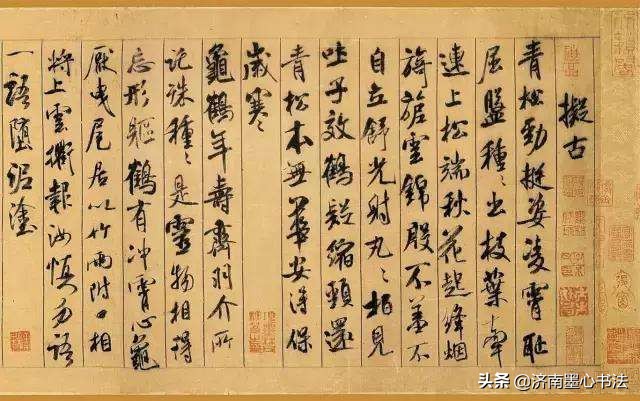 擬古
青松勁挺姿凌霄恥
屈盤種〻出枝葉牽
連上松端秋花起絳烟
旖旎雲錦殷不羞不
自立舒光射丸〻柏見
吐子效鶴疑縮頸還
青松本無華安得保
歲寒
龜鶴年壽齊羽介所
託殊種〻是靈物相得
忘形軀鶴有沖霄心龜
厭曳尾居以竹兩附口相
將上雲衢報汝慎勿語
一語墮泥塗
头条 @济南墨心书法